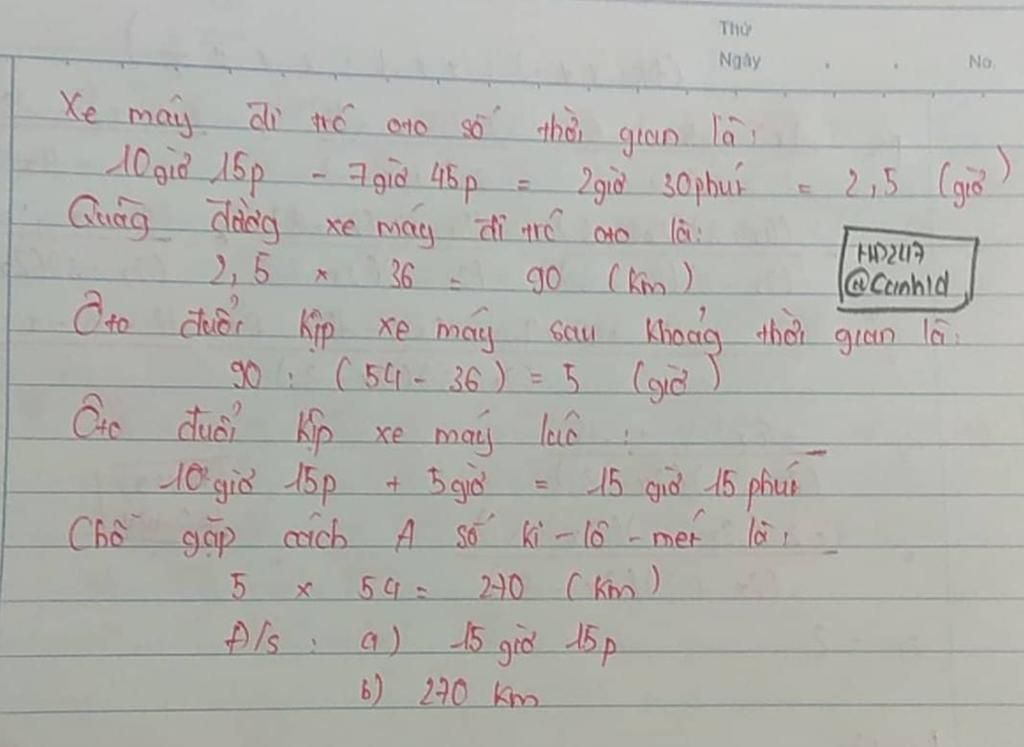 Thứ
Ngày No.
Xe máy đi trc oto số thời gian là:
10giờ 15p - 7giờ 45p = 2giờ 30phút = 2,5 (giờ)
Quãg đườg xe máy đi trc oto là:
2,5 x 36 = 90 (km)
HD247
@Canh1d
Ôto đuổi kịp xe máy sau khoảg thời gian là:
90 : (54 - 36) = 5 (giờ)
Ôto đuổi kịp xe máy lúc :
10 giờ 15p + 5giờ = 15 giờ 15 phút
Chỗ gặp cách A số ki-lô-mét là:
5 x 54 = 270 (km)
Đ/s : a) 15 giờ 15p
b) 270 km